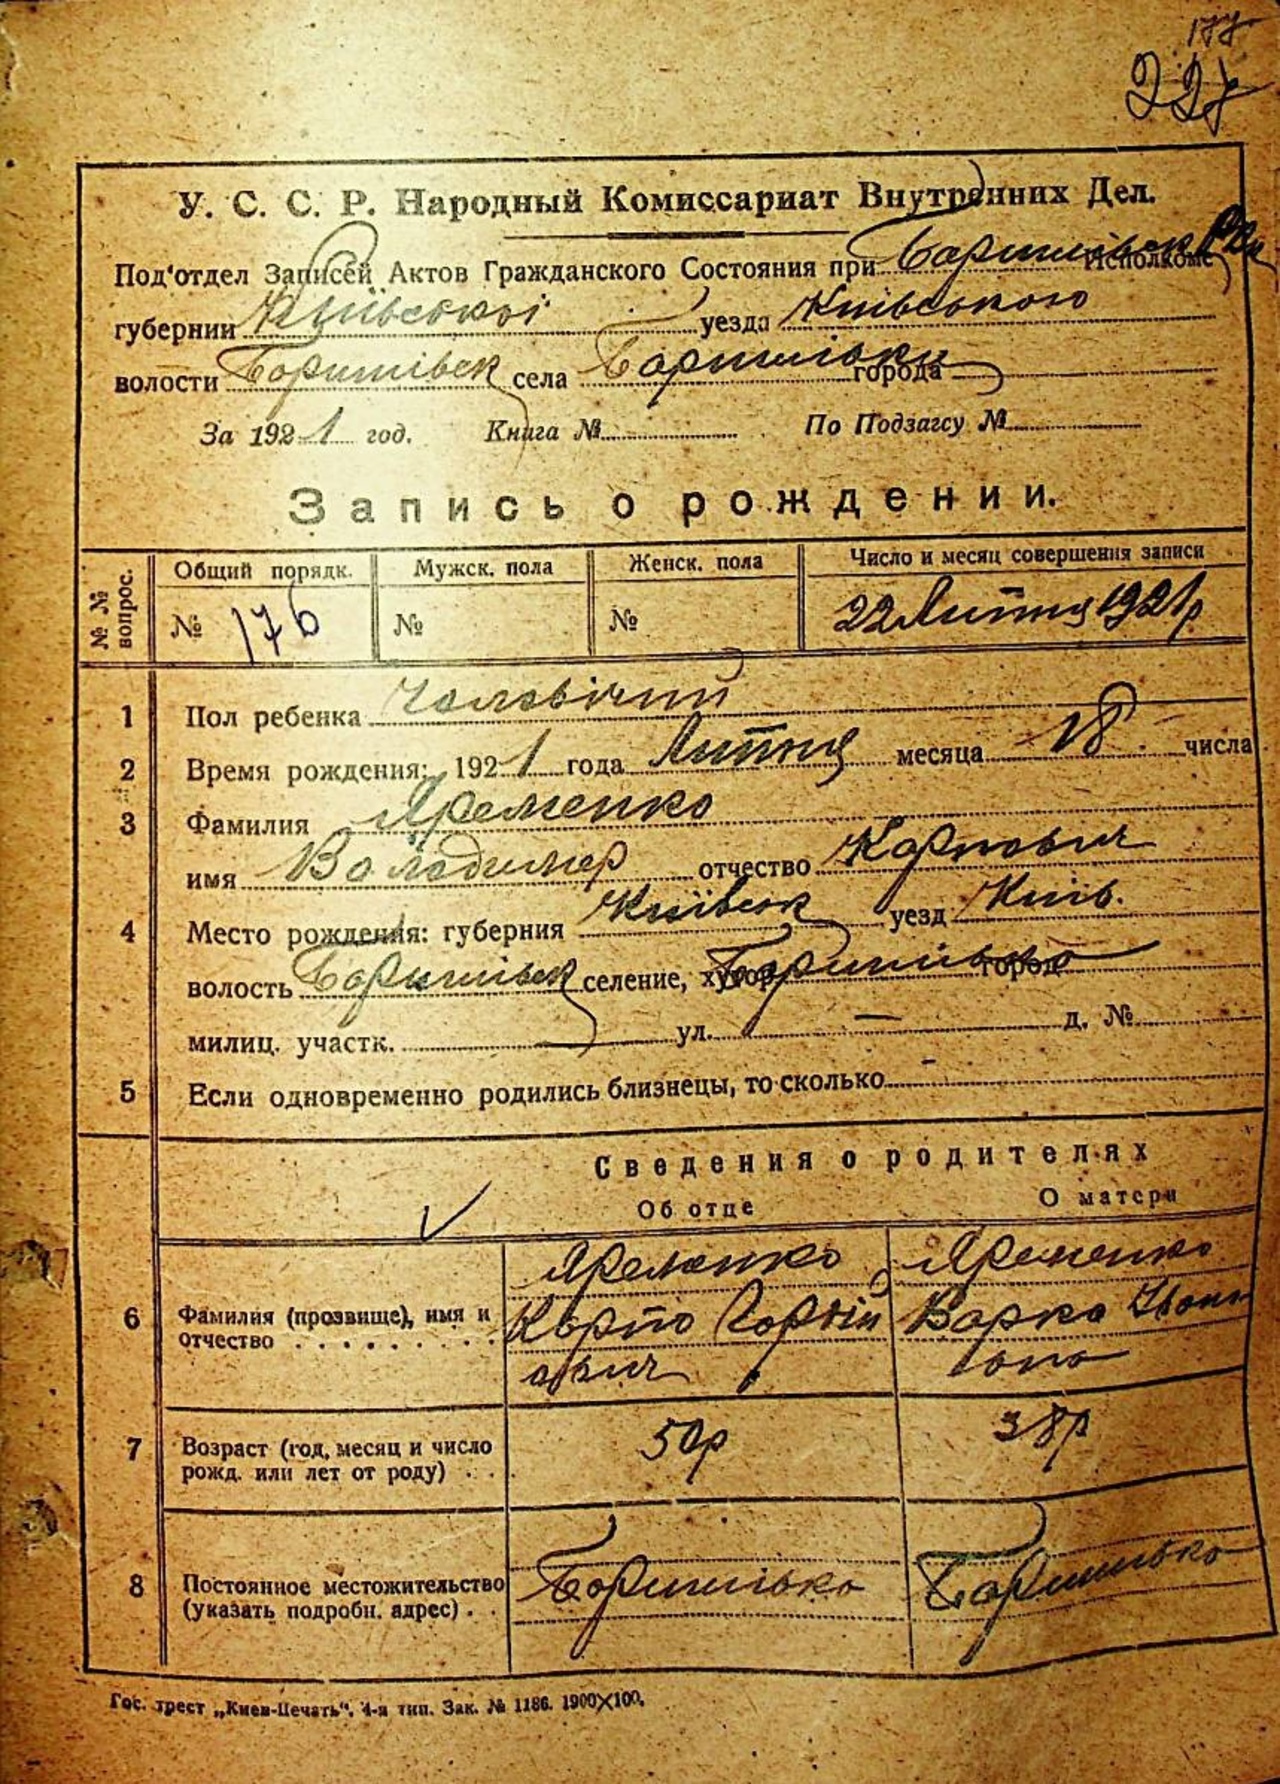 177
227
У. С. С. Р. Народный Комиссариат Внутренних Дел.
Под'отдел Записей Актов Гражданского Состояния при Баришівск РВк Исполкоме
губернии Київської уезда Київського
волости Баришівск села Баришівки города
За 1921 год. Книга № По Подзагсу №
Запись о рождении.
№ № вопрос. Общий порядк. Мужск. пола Женск. пола Число и месяц совершения записи
№ 176 № № 22 Липня 1921 р
1 Пол ребенка Чоловічий
2 Время рождения: 1921 года Липня месяца 18 числа
3 Фамилия Яременко
имя Володимер отчество Карпович
4 Место рождения: губерния Київськ уезд Київ.
волость Баришівск селение, хутор Баришівка город
милиц. участк. ул. — д. №
5 Если одновременно родились близнецы, то сколько -
Сведения о родителях
Об отце О матери
Яременко Яременко
6 Фамилия (прозвище), имя и Карпо Варка
отчество
7 Возраст (год, месяц и число 50р 38р
рожд. или лет от роду)
8 Постоянное местожительство Баришівка Баришівка
(указать подробн. адрес)
Гос. трест „Киев-Печать“. 4-я тип. Зак. № 1186. 1900×100.